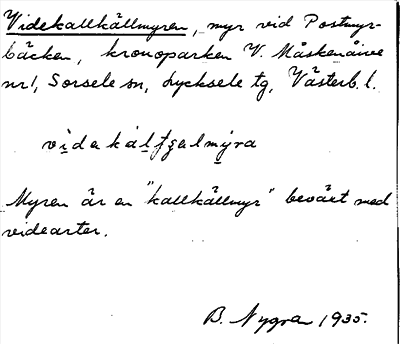 Videkallkällmyren, myr vid Postmyr-
bäcken, kronoparken V. Måskenåive
nr 1, Sorsele sn, Lycksele tg, Västerb. l.
Myren är en "kallkällmyr" beväxt med
videarter.
B. Nygren 1935.